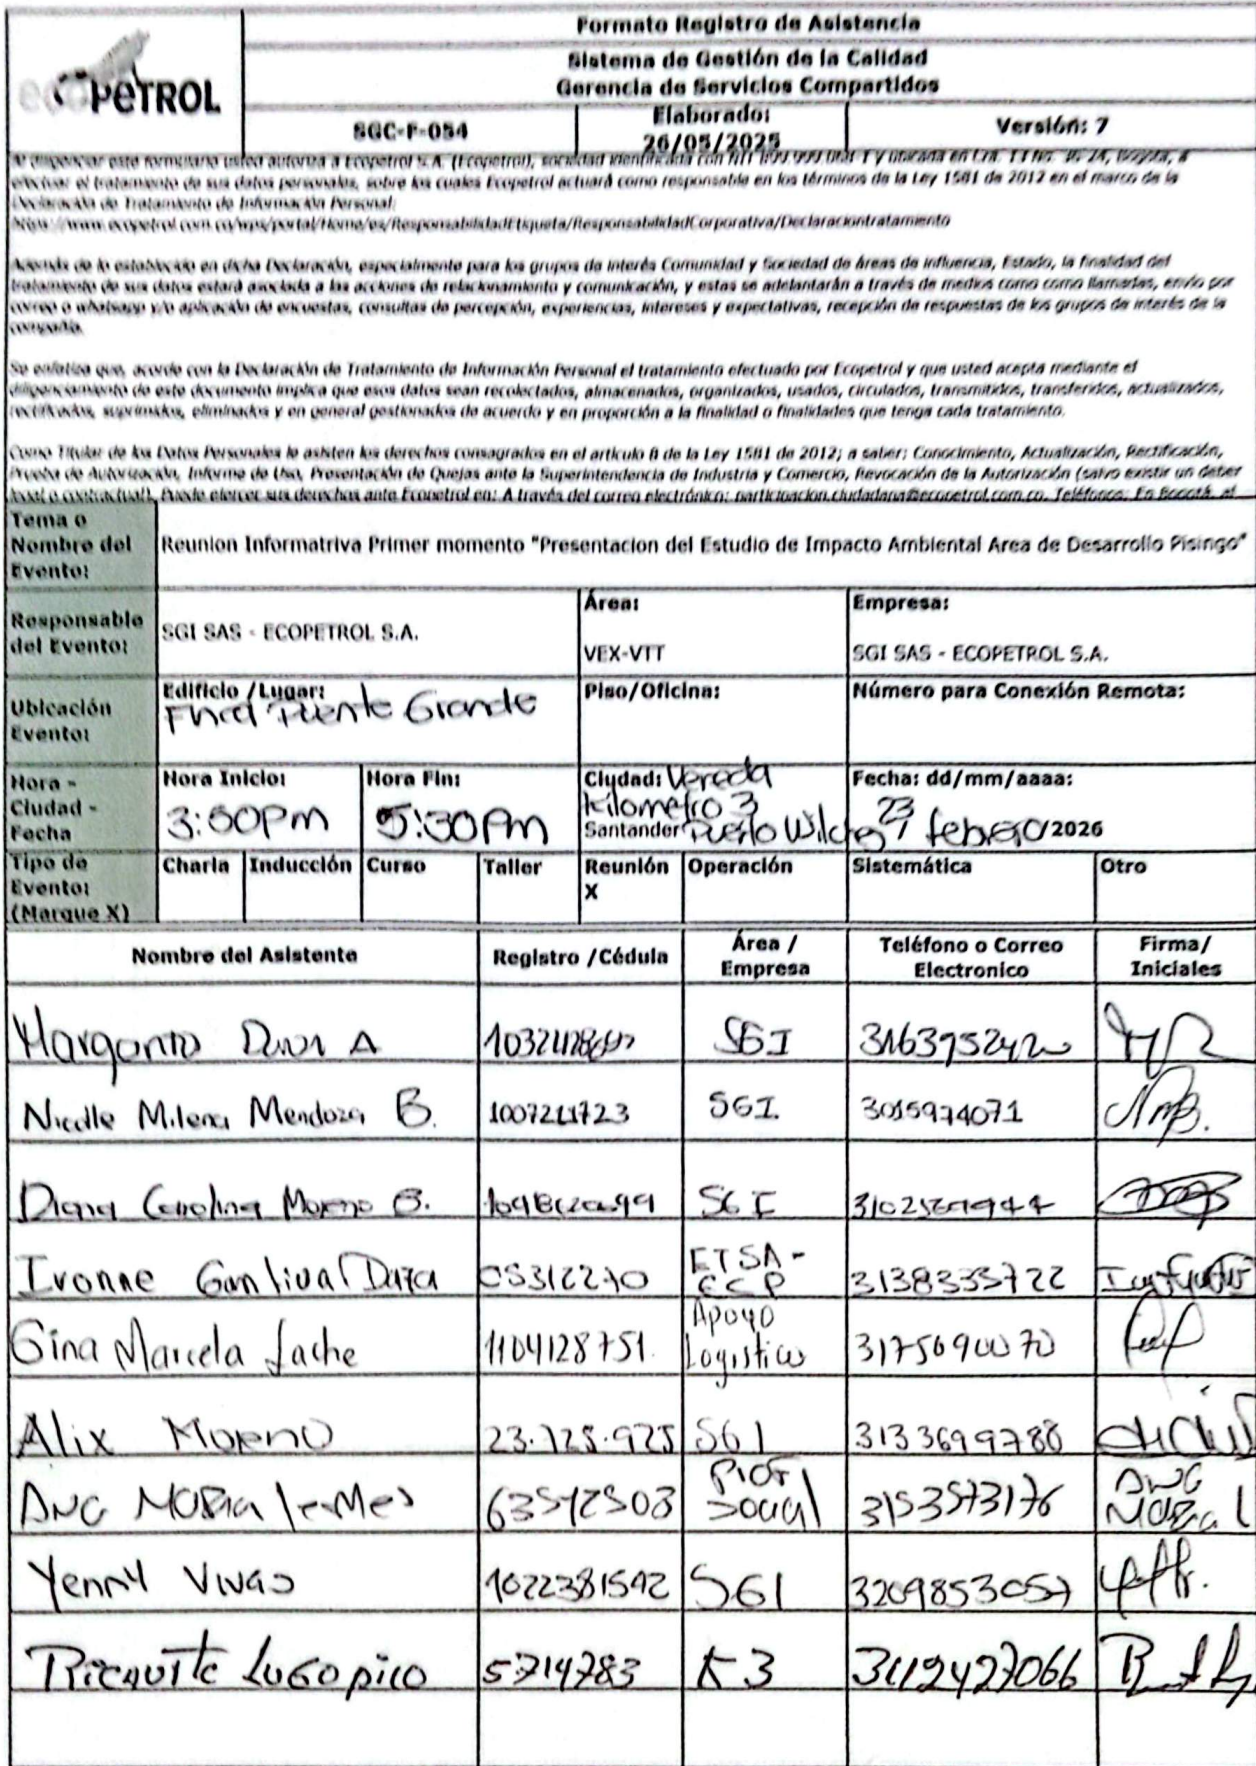 ecoPETROL
Formato Registro de Asistencia
Sistema de Gestión de la Calidad
Gerencia de Servicios Compartidos
SGC-F-054
Elaborado:
26/05/2025
Versión: 7
Al diligenciar este formulario usted autoriza a Ecopetrol S.A. (Ecopetrol), sociedad identificada con NIT 899.999.068-1 y ubicada en Cra. 13 No. 36-24, Bogotá, a
efectuar el tratamiento de sus datos personales, sobre los cuales Ecopetrol actuará como responsable en los términos de la Ley 1581 de 2012 en el marco de la
Declaración de Tratamiento de Información Personal:
https://www.ecopetrol.com.co/wps/portal/Home/es/ResponsabilidadEtiqueta/ResponsabilidadCorporativa/Declaraciontratamiento
Además de lo establecido en dicha Declaración, especialmente para los grupos de interés Comunidad y Sociedad de áreas de influencia, Estado, la finalidad del
tratamiento de sus datos estará asociada a las acciones de relacionamiento y comunicación, y estas se adelantarán a través de medios como como llamadas, envío por
correo o whatsapp y/o aplicación de encuestas, consultas de percepción, experiencias, intereses y expectativas, recepción de respuestas de los grupos de interés de la
compañía.
Se enfatiza que, acorde con la Declaración de Tratamiento de Información Personal el tratamiento efectuado por Ecopetrol y que usted acepta mediante el
diligenciamiento de este documento implica que esos datos sean recolectados, almacenados, organizados, usados, circulados, transmitidos, transferidos, actualizados,
rectificados, suprimidos, eliminados y en general gestionados de acuerdo y en proporción a la finalidad o finalidades que tenga cada tratamiento.
Como Titular de los Datos Personales le asisten los derechos consagrados en el artículo 8 de la Ley 1581 de 2012; a saber: Conocimiento, Actualización, Rectificación,
Prueba de Autorización, Informe de Uso, Presentación de Quejas ante la Superintendencia de Industria y Comercio, Revocación de la Autorización (salvo existir un deber
legal o contractual). Puede ejercer sus derechos ante Ecopetrol en: A través del correo electrónico: participacion.ciudadana@ecopetrol.com.co. Teléfonos: En Bogotá, al
Tema o
Nombre del
Evento:
Reunion Informatriva Primer momento "Presentacion del Estudio de Impacto Ambiental Area de Desarrollo Pisingo"
Responsable
del Evento:
SGI SAS - ECOPETROL S.A.
Área:
VEX-VTT
Empresa:
SGI SAS - ECOPETROL S.A.
Ubicación
Evento:
Edificio /Lugar:
Finca Puente Grande
Piso/Oficina:
Número para Conexión Remota:
Hora -
Ciudad -
Fecha
Hora Inicio:
3:00Pm
Hora Fin:
5:30Pm
Ciudad: Vereda
Kilometro 3
Santander Puerto Wilches
Fecha: dd/mm/aaaa:
23/ febrero/2026
Tipo de
Evento:
(Marque X)
Charla Inducción Curso Taller Reunión Operación Sistemática Otro
X
Nombre del Asistente Registro /Cédula Área / Empresa Teléfono o Correo Electronico Firma/ Iniciales
A SGI
Nicolle Milena Mendoza B. 1007211723 SGI. 3015974071 NmB.
Diana Carolina Moreno B. SGI
Ivonne 05312270 ETSA - ECP 3138333722
Gina Marcela Lache 1104128751. Apoyo Logistico
Alix Moreno 23.725.925 SGI 3133699788
Ana Maria Lemes 63542503 Prof Social 3153573176 Ana Maria L
Yenny Vivas 1022381592 SGI 3209853057
Ricaurte Lugo pico 5714783 K3